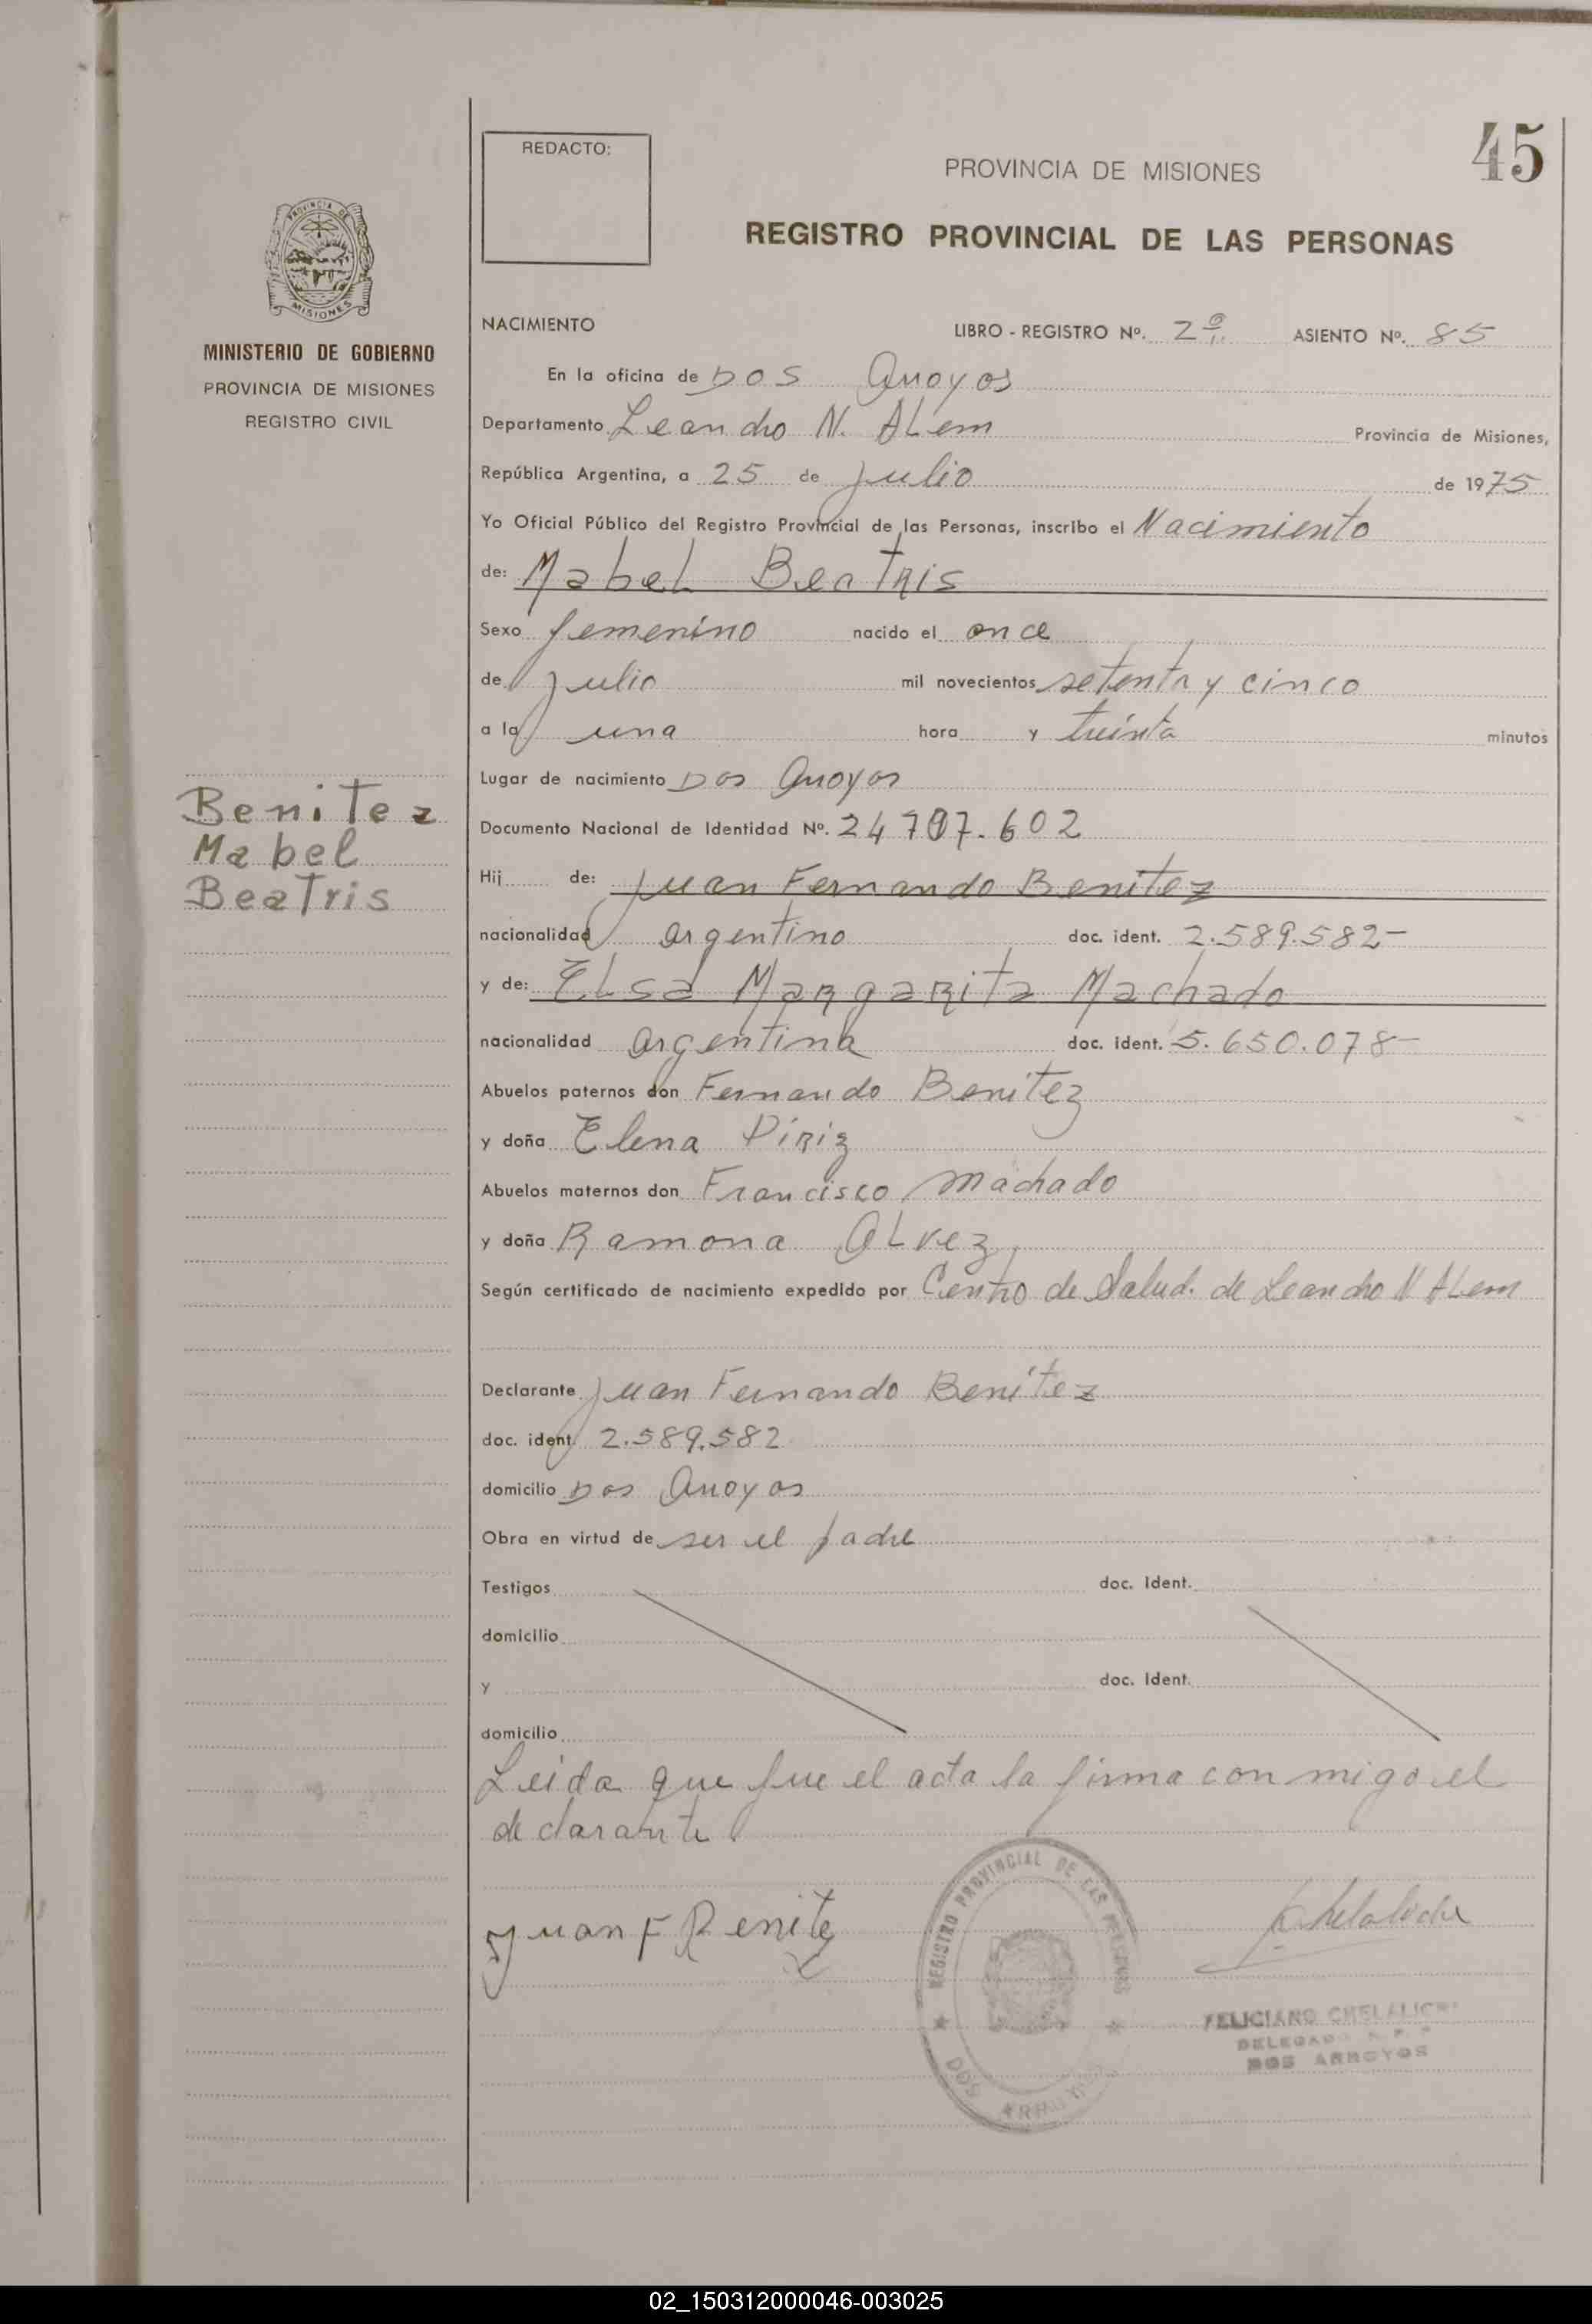 45
REDACTO:
PROVINCIA DE MISIONES
REGISTRO PROVINCIAL DE LAS PERSONAS
PROVINCIA DE
MISIONES
MINISTERIO DE GOBIERNO
PROVINCIA DE MISIONES
REGISTRO CIVIL
NACIMIENTO LIBRO - REGISTRO Nº. 2º ASIENTO Nº. 85
En la oficina de DOS Arroyos
Departamento Leandro N. ALem Provincia de Misiones,
República Argentina, a 25 de julio de 1975
Yo Oficial Público del Registro Provincial de las Personas, inscribo el Nacimiento
de: Mabel Beatris
Sexo femenino nacido el once
de julio mil novecientos setenta y cinco
a la una hora y treinta minutos
Lugar de nacimiento Dos Arroyos
Documento Nacional de Identidad Nº. 24 707.602
Benitez
Mabel
Beatris
Hij de: Juan Fernando Benítez
nacionalidad argentino doc. ident. 2.589.582-
y de: ELsa Margarita Machado
nacionalidad argentina doc. ident. 5.650.078-
Abuelos paternos don Fernando Benítez
y doña Elena Píriz
Abuelos maternos don Francisco Machado
y doña Ramona ALvez
Según certificado de nacimiento expedido por Centro de Salud. de Leandro N ALem
Declarante Juan Fernando Benítez
doc. ident. 2.589.582
domicilio Dos Arroyos
Obra en virtud de ser el padre
Testigos doc. Ident.
domicilio
y doc. Ident.
domicilio
Leida que fue el acta la firma con migo el
declarante
Juan F Benitez
REGISTRO PROVINCIAL DE LAS PERSONAS
DOS ARROYOS
FELICIANO CHELALICHE
DELEGADO
DOS ARROYOS
02_150312000046-003025